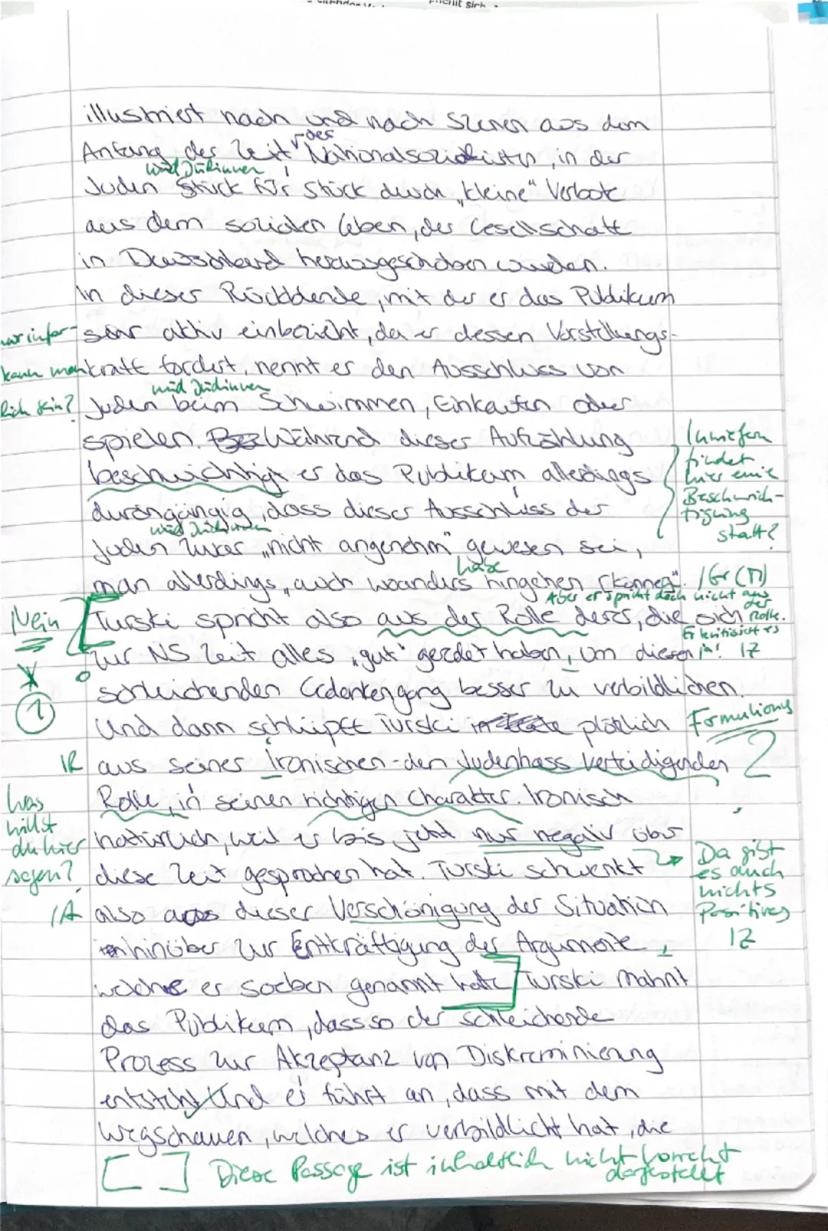 illustriert nach und nach Szenen aus dem
Anfang der Zeit der Nationalsozialisten, in der
Juden und Jüdinnen Stück für Stück durch „kleine" Verbote
aus dem sozialen Leben, der Gesellschaft
in Deutschland herausgeschoben wurden.
In dieser Rückblende, mit der er das Publikum
sehr aktiv einbezieht, da er dessen Vorstellungs-
kraft fordert, nennt er den Ausschluss von
Juden und Jüdinnen beim Schwimmen, Einkaufen oder
spielen. Während dieser Aufzählung
beschwichtigt er das Publikum allerdings
durchgängig, dass dieser Ausschluss der
Juden und Jüdinnen zwar „nicht angenehm" gewesen sei,
man allerdings „auch woanders hingehen könne".
Turski spricht also aus der Rolle derer, die sich
zur NS Zeit alles „gut" geredet haben, um diesen
schleichenden Gedankengang besser zu verbildlichen.
Und dann schlüpft Turski plötzlich
aus seiner Ironischen-den Judenhass verteidigenden
Rolle, in seinen richtigen Charakter. Ironisch
natürlich, weil er bis jetzt nur negativ über
diese Zeit gesprochen hat. Turski schwenkt
also aus dieser Verschönigung der Situation
hinüber zur Entkräftigung der Argumente,
welche er soeben genannt hat. Turski mahnt
das Publikum, dass so der schleichende
Prozess zur Akzeptanz von Diskriminierung
entsteht. Und er führt an, dass mit dem
Wegschauen, welches er verbildlicht hat, die
[ ] Diese Passage ist inhaltlich nicht korrekt
dargestellt
kann man
Nein
1
R
Was
willst
du hier
sagen?
A
Inwiefern
findet
hier eine
Beschwich-
tigung
statt?
Gr (M)
Aber er spricht doch nicht aus
der
Rolle.
Er kritisiert es
ja! Z
Formulierung
Da gibt
es auch
nichts
Positives
Z